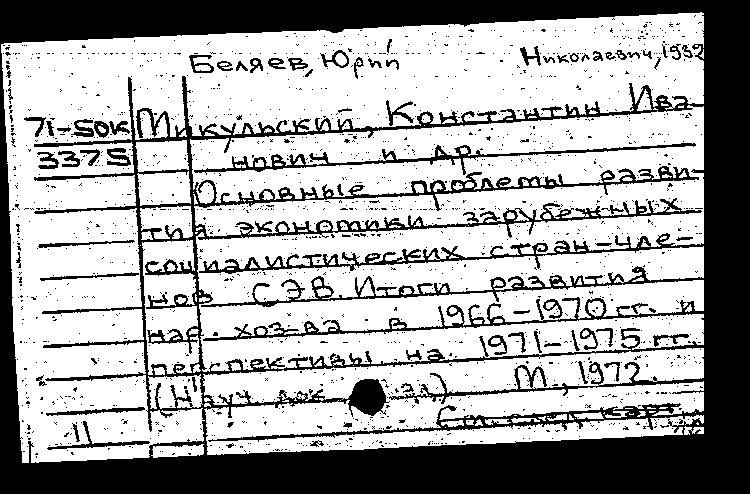 Беляев, Юрий Николаевич, 1932
71-50к Микульский, Константин Ива-
3375 нович и др.
Основные проблемы разви-
тия экономики зарубежных
социалистических стран-чле-
нов СЭВ. Итоги развития
нар. хоз-ва в 1966-1970 гг. и
перспективы на 1971-1975 гг.
(Науч. док ) М, 1972.
11 См. след. карт.